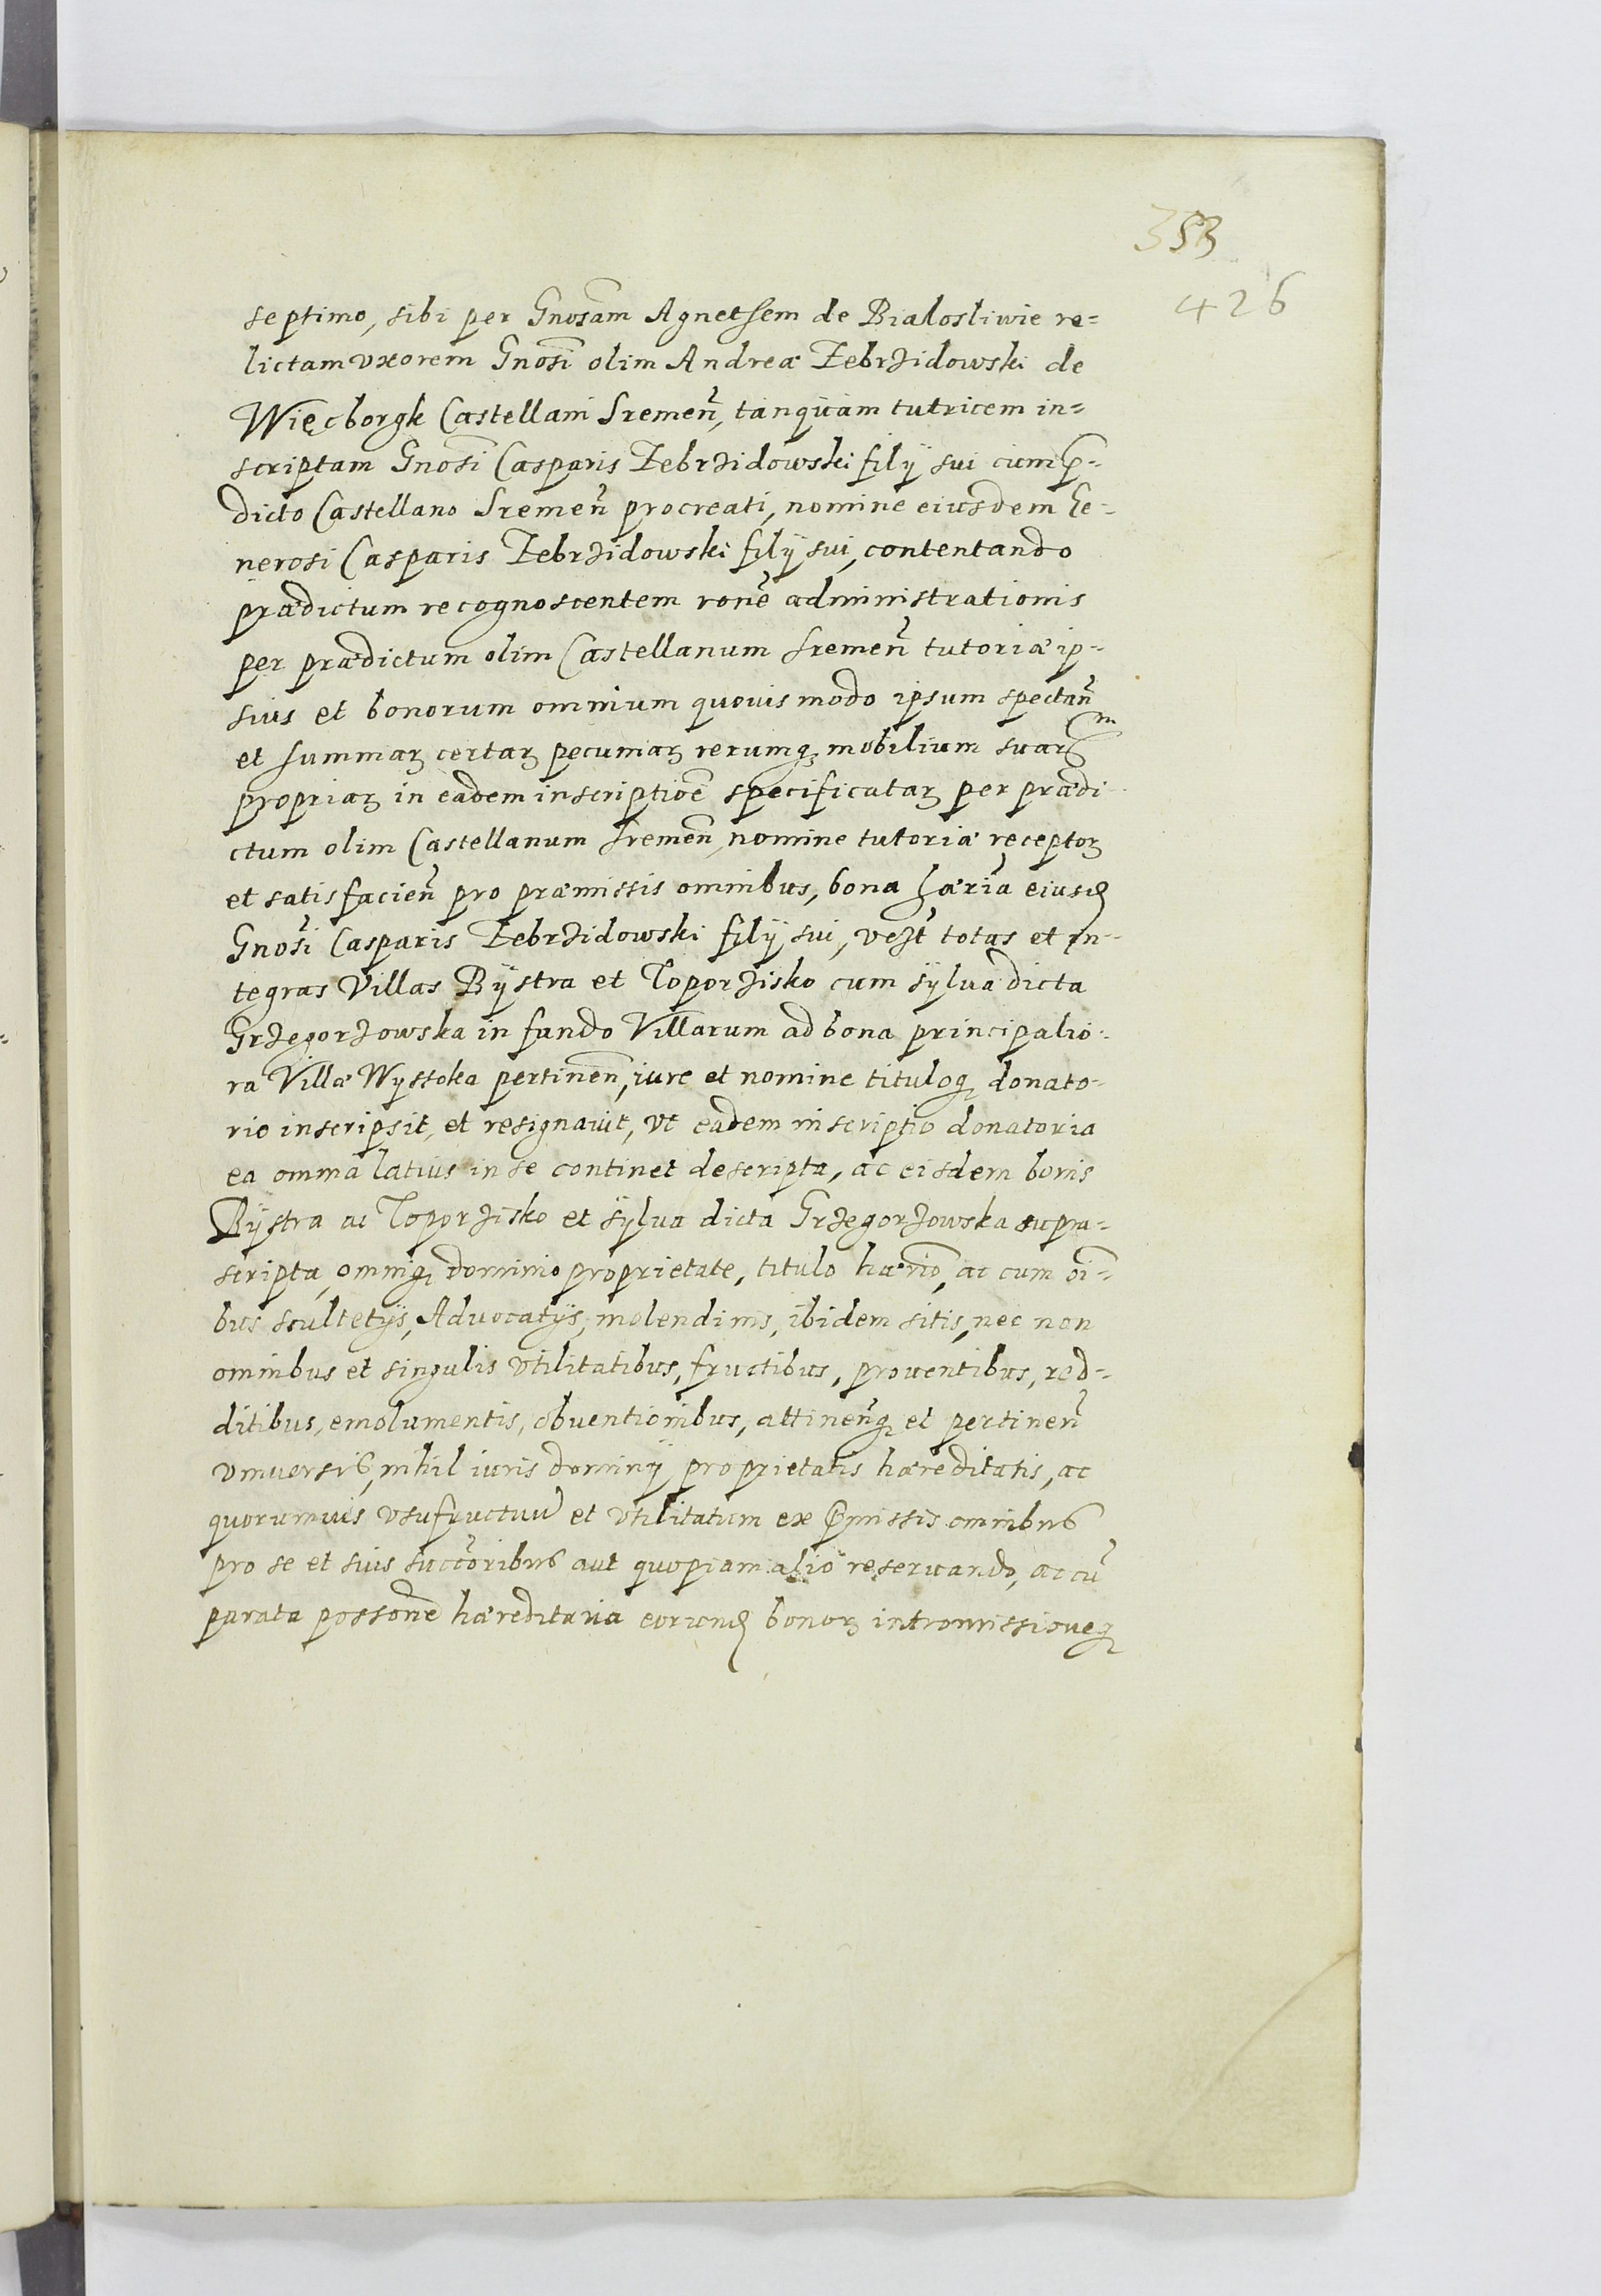 353
426
septimo, sibi per Gnosam Agnetsem de Bialosliwie re=
lictam vxorem Gnosi olim Andreæ Zebrzidowski de
Więcborgk Castellani Sremen̄, tanquam tutricem in=
scriptam Gnosi Casparis Zebrzidowski filÿ sui cum p̄=
dicto Castellano Sremen̄ procreati, nomine eiusdem Ge=
nerosi Casparis Zebrzidowski filÿ sui, contentando
prædictum recognoscentem ronē administrationis
per prædictum olim Castellanum Sremen̄ tutoriæ ip=
sius et bonorum omnium quovis modo ipsum spectan̄
et summaꝝ certaꝝ pecuniaꝝ rerumqꝫ mobilium suarm
propriaꝝ in eadem inscriptioē specificataꝝ per prædi-
ctum olim Castellanum Sremen̄, nomine tutoriæ receptoꝝ
et satisfacien̄ pro præmissis omnibus, bona hæria eiusd
Gnosi Casparis Zebrzidowski filÿ sui, vezt totas et in=
tegras Villas Bÿstra et Toporzisko cum sÿlva dicta
Grzegorzowska in fundo Villarum ad bona principalio=
ra Villæ Wyssoka pertinen̄, iure et nomine tituloqꝫ donato=
rio inscripsit, et resignauit, vt eadem inscriptio donatoria
ea omnia latius in se continet descripta, ac eisdem bonis
Bÿstra ac Toporzisko et sÿlva dicta Grzegorzowska supra=
scripta, omniqꝫ dominio proprietate, titulo hærio, ac cum oī=
bus scultetÿs, Advocatÿs, molendinis, ibidem sitis, nec non
omnibus et singulis vtilitatibus, fructibus, proventibus, red=
ditibus, emolumentis, obventionibus, attinen̄qꝫ et pertinen̄
vniversis, nihil iuris dominÿ proprietatis hæreditatis, ac
quorumvis vsufructuū et vtilitatum ex p̄missis omnibus
pro se et suis succoribus aut quopiam alio reservando, ac cū
parata possonē hæreditaria eorund bonoꝝ intromissioneqꝫ